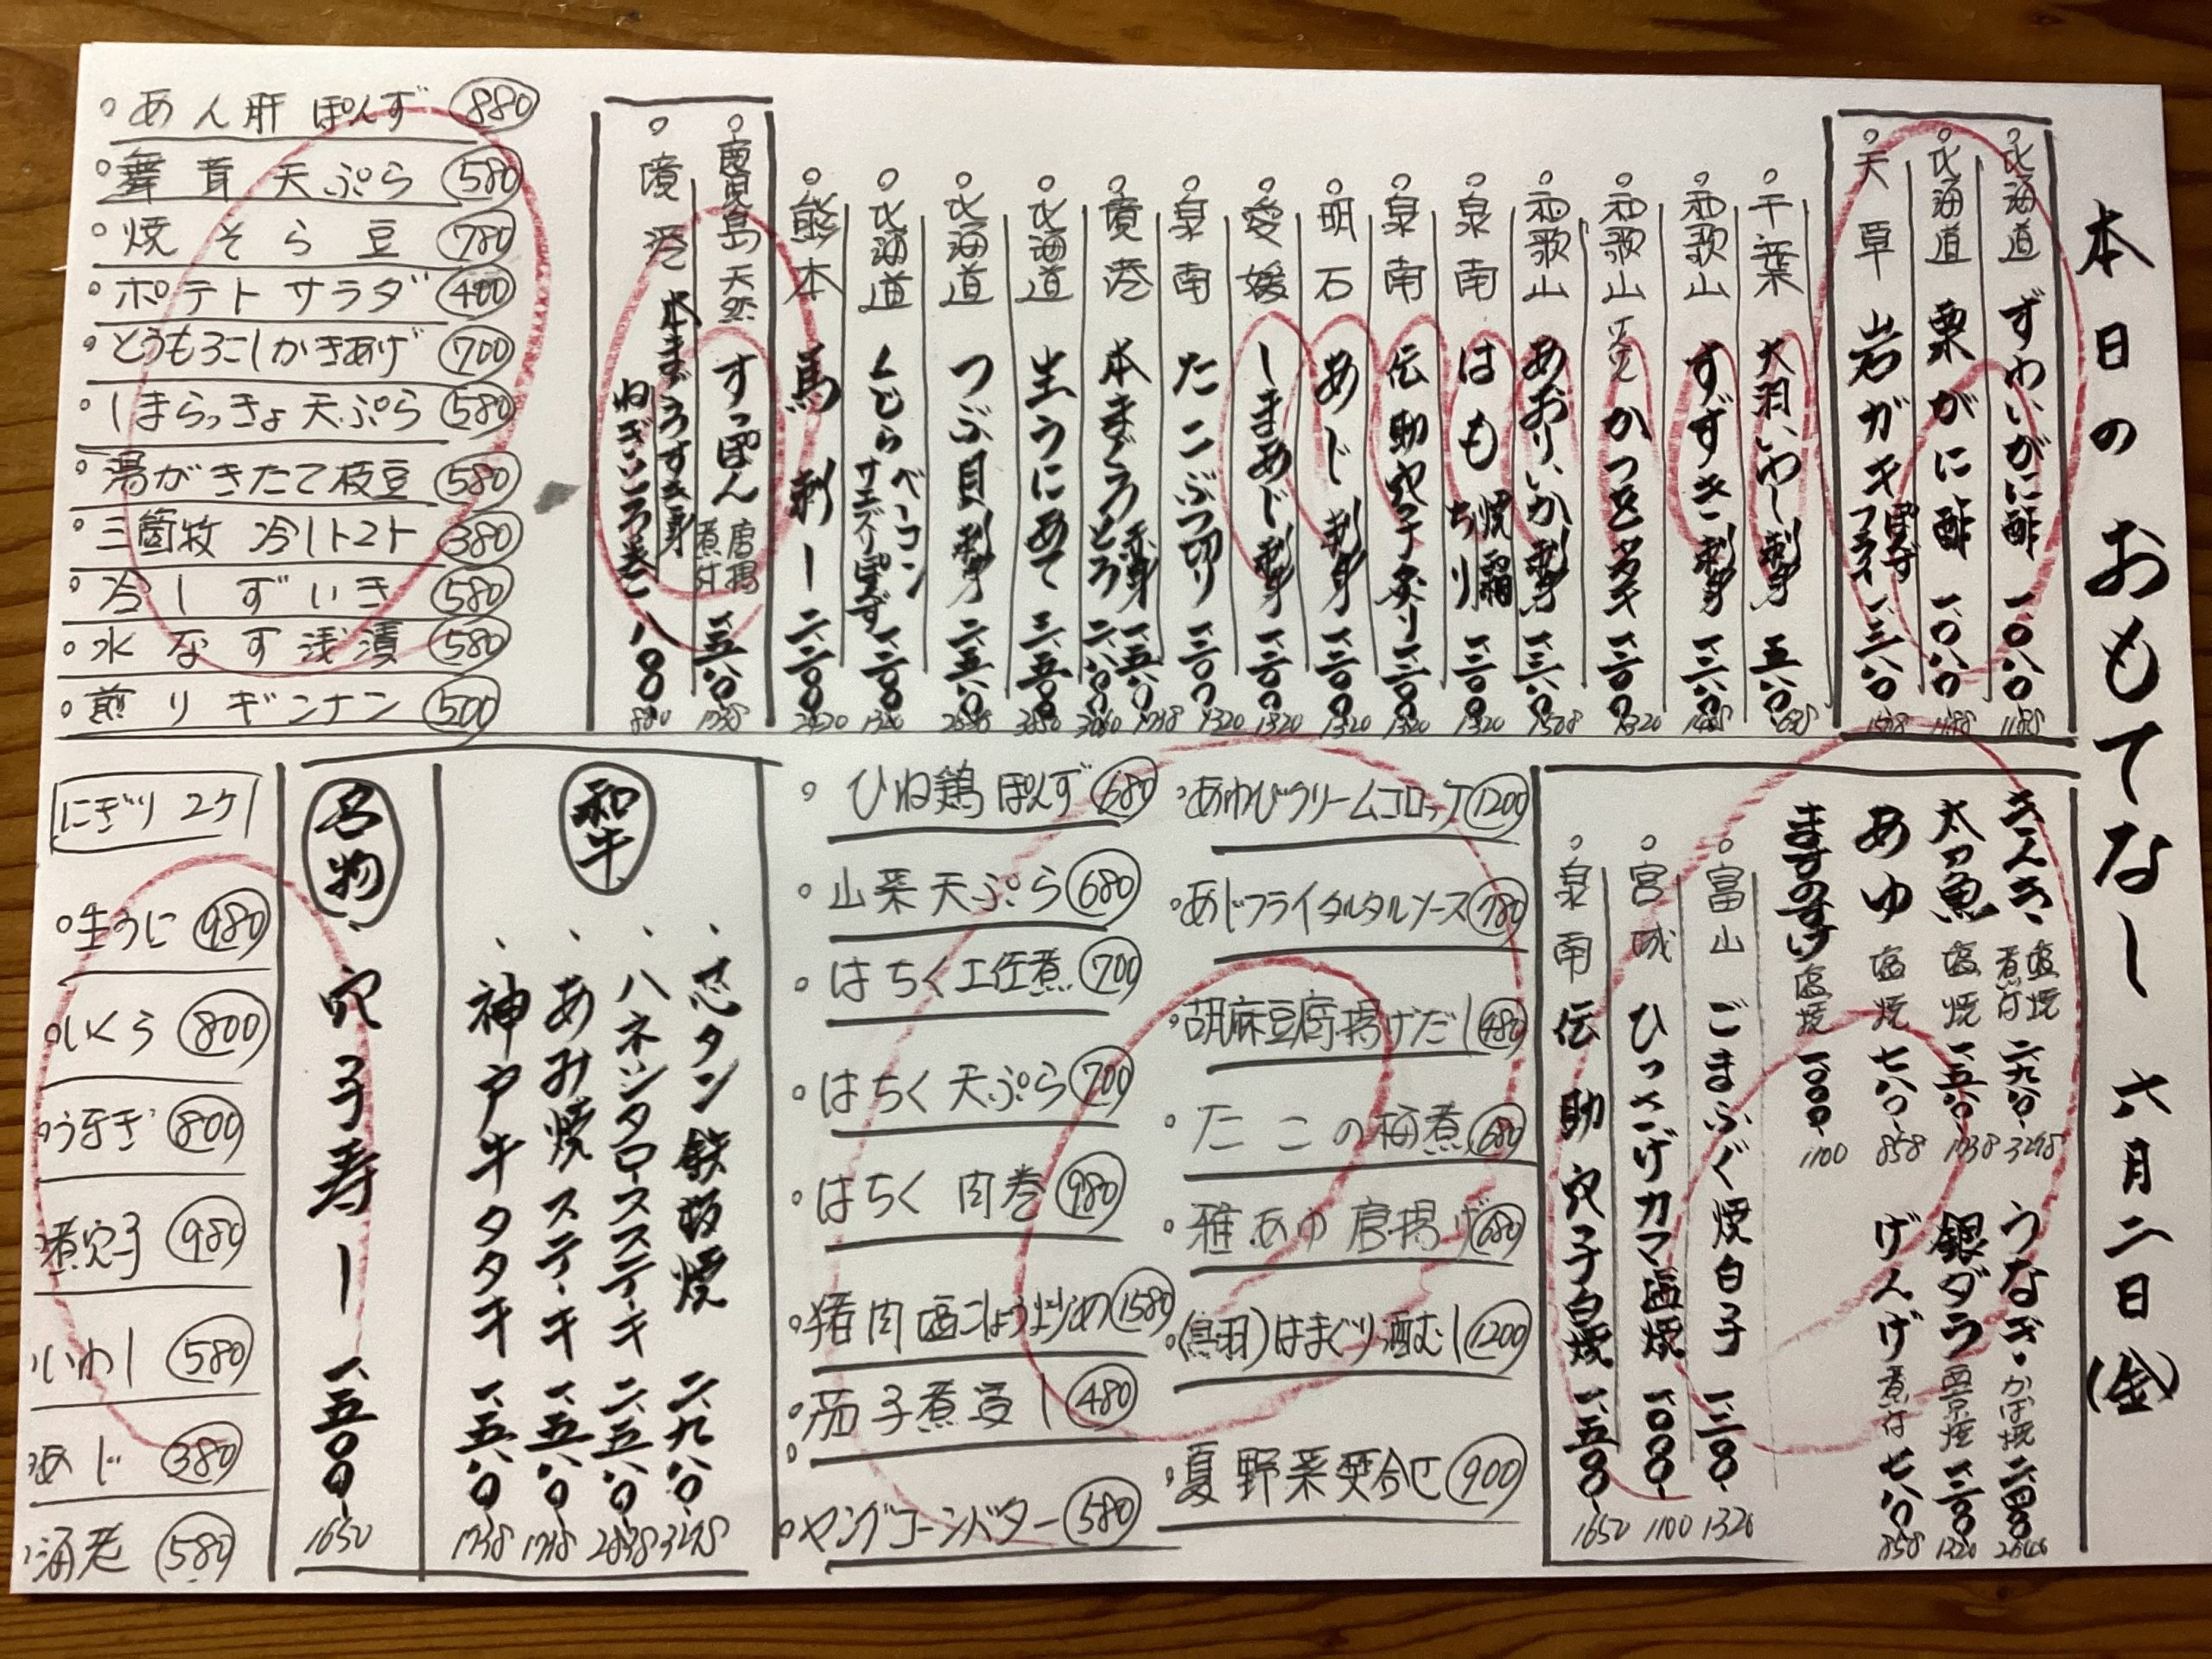 本日のおもてなし 六月二日(金)
北海道 ずわいがに酢 一、〇八〇 1188
北海道 栗がに酢 一、〇八〇 1188
天草 岩ガキ ぽんず フライ 一、三八〇 1518
千葉 大羽いわし刺身 五八〇 638
和歌山 すずき刺身
和歌山 かつをタタキ 一、二〇〇 1320
和歌山 あおりいか刺身 一、三八〇 1518
泉南 はも 焼霜 ちり 一、二〇〇 1320
泉南 伝助穴子炙り 一、二〇〇 1320
明石 あじ刺身 一、二〇〇 1320
愛媛 しまあじ刺身 一、二〇〇 1320
泉南 たこぶつ切り 一、二〇〇 1320
境港 本まぐろ 赤身 一、五八〇 1738 とろ 二、八〇〇 3080
北海道 生うにあて 三、五〇〇 3850
北海道 つぶ貝刺身
北海道 くじら ベーコン サエズリぽんず 一、二〇〇 1320
熊本 馬刺し 二、二〇〇 2420
鹿児島 天然 すっぽん 唐揚 煮付 一、五八〇 1738
境港 本まぐろすき身 ねぎいころ巻
あん肝ぽんず 880
舞茸天ぷら 580
焼そら豆 780
ポテトサラダ 400
とうもろこしかきあげ 700
しまらっきょ天ぷら 580
湯がきたて枝豆 580
三箇牧 冷しトマト 380
冷しずいき 580
水なす浅漬 580
煎りギンナン 500
きんき 塩焼 煮付 二、九八〇 3278
太刀魚 塩焼 一、五八〇 1738
あゆ 塩焼 七八〇 858
ますのすけ 塩焼 一、〇〇〇 1100
うなぎ かば焼 二、四〇〇 2640
銀ダラ 西京焼 一、二〇〇 1320
げんげ 煮付 七八〇 858
富山 ごまふぐ焼白子 一、二〇〇 1320
宮城 ひっさげカマ塩焼 一、〇〇〇 1100
泉南 伝助穴子白焼 一、五〇〇 1650
あわびクリームコロッケ 1200
あじフライタルタルソース 780
胡麻豆腐揚げだし 480
たこの梅煮 680
稚あゆ唐揚げ 680
(鳥羽)はまぐり酒むし 1200
夏野菜焚合せ 900
ひね鶏ぽんず 680
山菜天ぷら 680
はちく土佐煮 700
はちく天ぷら 700
はちく肉巻 980
猪肉塩こしょう炒め 1580
茄子煮浸し 480
ヤングコーンバター 580
和牛
芯タン鉄板焼 二、九八〇 3278
ハネシタロースステーキ 二、五八〇 2838
あみ焼ステーキ 一、五八〇 1738
神戸牛タタキ 一、五八〇 1738
名物
穴子寿し 一、五〇〇 1650
にぎり2ケ
生うに 980
いくら 800
うなぎ 800
煮穴子 980
いわし 580
あじ 380
海老 580